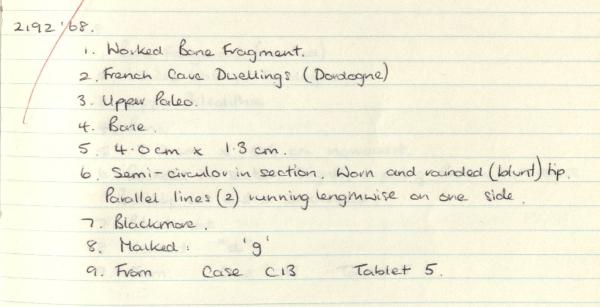 2192 '68.
1. Worked Bone Fragment.
2. French Cave Dwellings (Dordogne)
3. Upper Paleo.
4. Bone.
5. 4.0cm x 1.3 cm.
6. Semi-circular in section. Worn and rounded (blunt) tip.
Parallel lines (2) running lengthwise on one side.
7. Blackmore.
8. Marked: 'g'
9. From Case C13 Tablet 5.